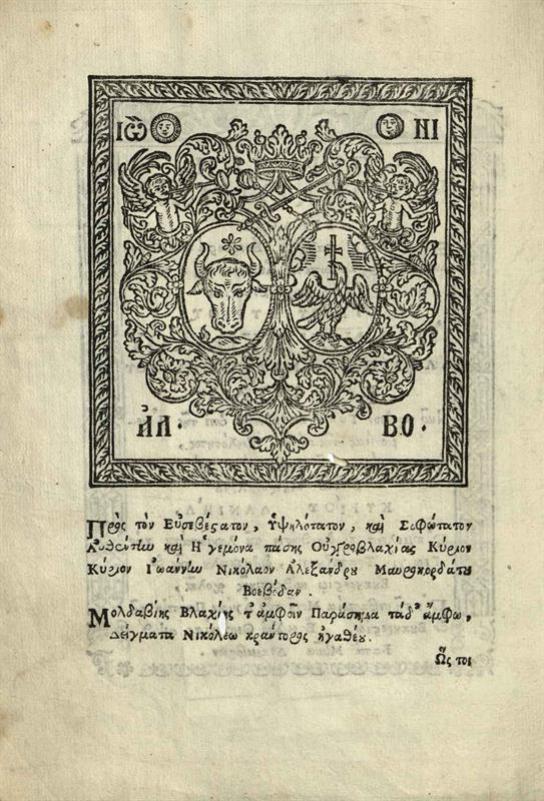 ΙѾ ΝΙ
ἈΛ· ΒΟ·
Πρὸς τὸν Εὐσεβέςατον, Ὑψηλότατον, καὶ Σοφώτατον
Αὐθέντην καὶ Ἡγεμόνα πάσης Οὐγγροβλαχίας Κύριον
Κύριον Ἰωάννην Νικόλαον Ἀλεξάνδρου Μαυροκορδάτου
Βοεβόδαν.
Μολδαβίης Βλαχίης τ' ἀμφοῖν Παράσημα τάδ' ἄμφω,
Δείγματα Νικόλεω κράντορος ἠγαθέου.
Ὥς τοι